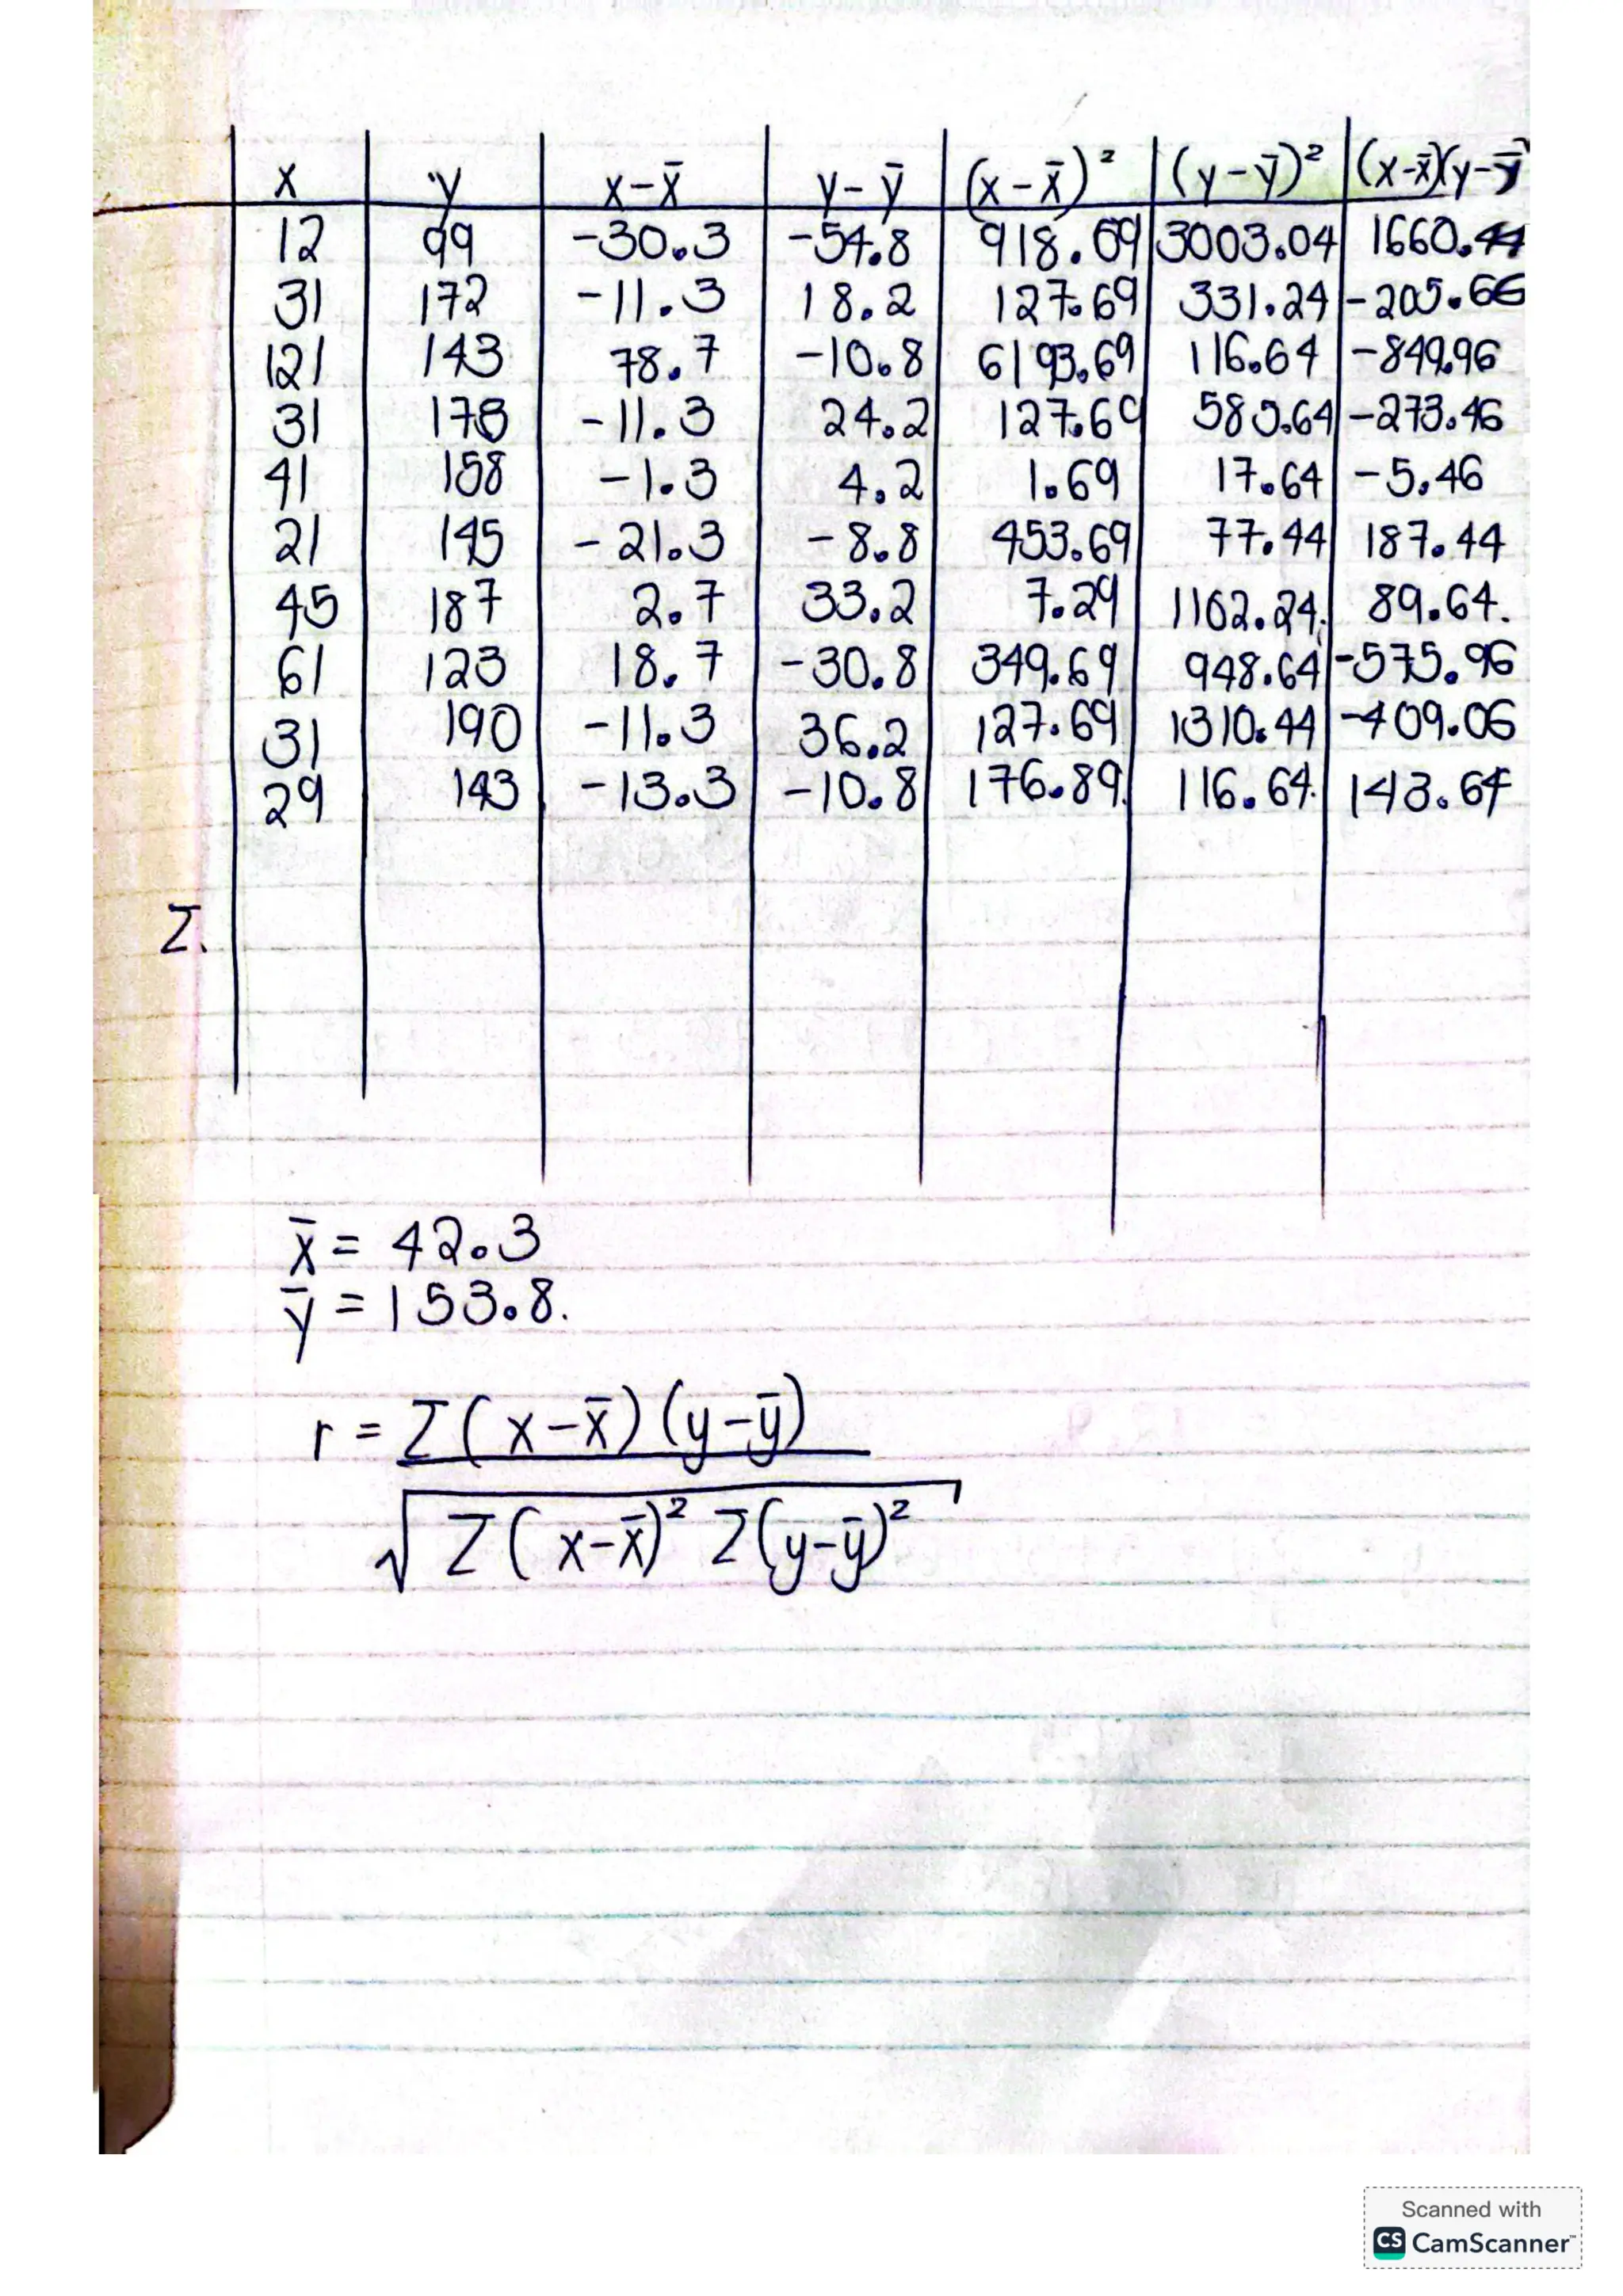 x y x-x̄ y-ȳ (x-x̄)² (y-ȳ)² (x-x̄)(y-ȳ)
12 99 -30.3 -54.8 918.09 3003.04 1660.44
31 172 -11.3 18.2 127.69 331.24 -205.66
121 143 78.7 -10.8 6193.69 116.64 -849.96
31 178 -11.3 24.2 127.69 585.64 -273.46
41 158 -1.3 4.2 1.69 17.64 -5.46
21 145 -21.3 -8.8 453.69 77.44 187.44
45 187 2.7 33.2 7.29 1102.24 89.64.
61 123 18.7 -30.8 349.69 948.64 -575.96
31 190 -11.3 36.2 127.69 1310.44 -409.06
29 143 -13.3 -10.8 176.89 116.64 143.64
Σ.
x̄ = 42.3
ȳ = 153.8.
r = Σ(x-x̄)(y-ȳ)
√Σ(x-x̄)² Σ(y-ȳ)²
Scanned with
CS CamScanner™